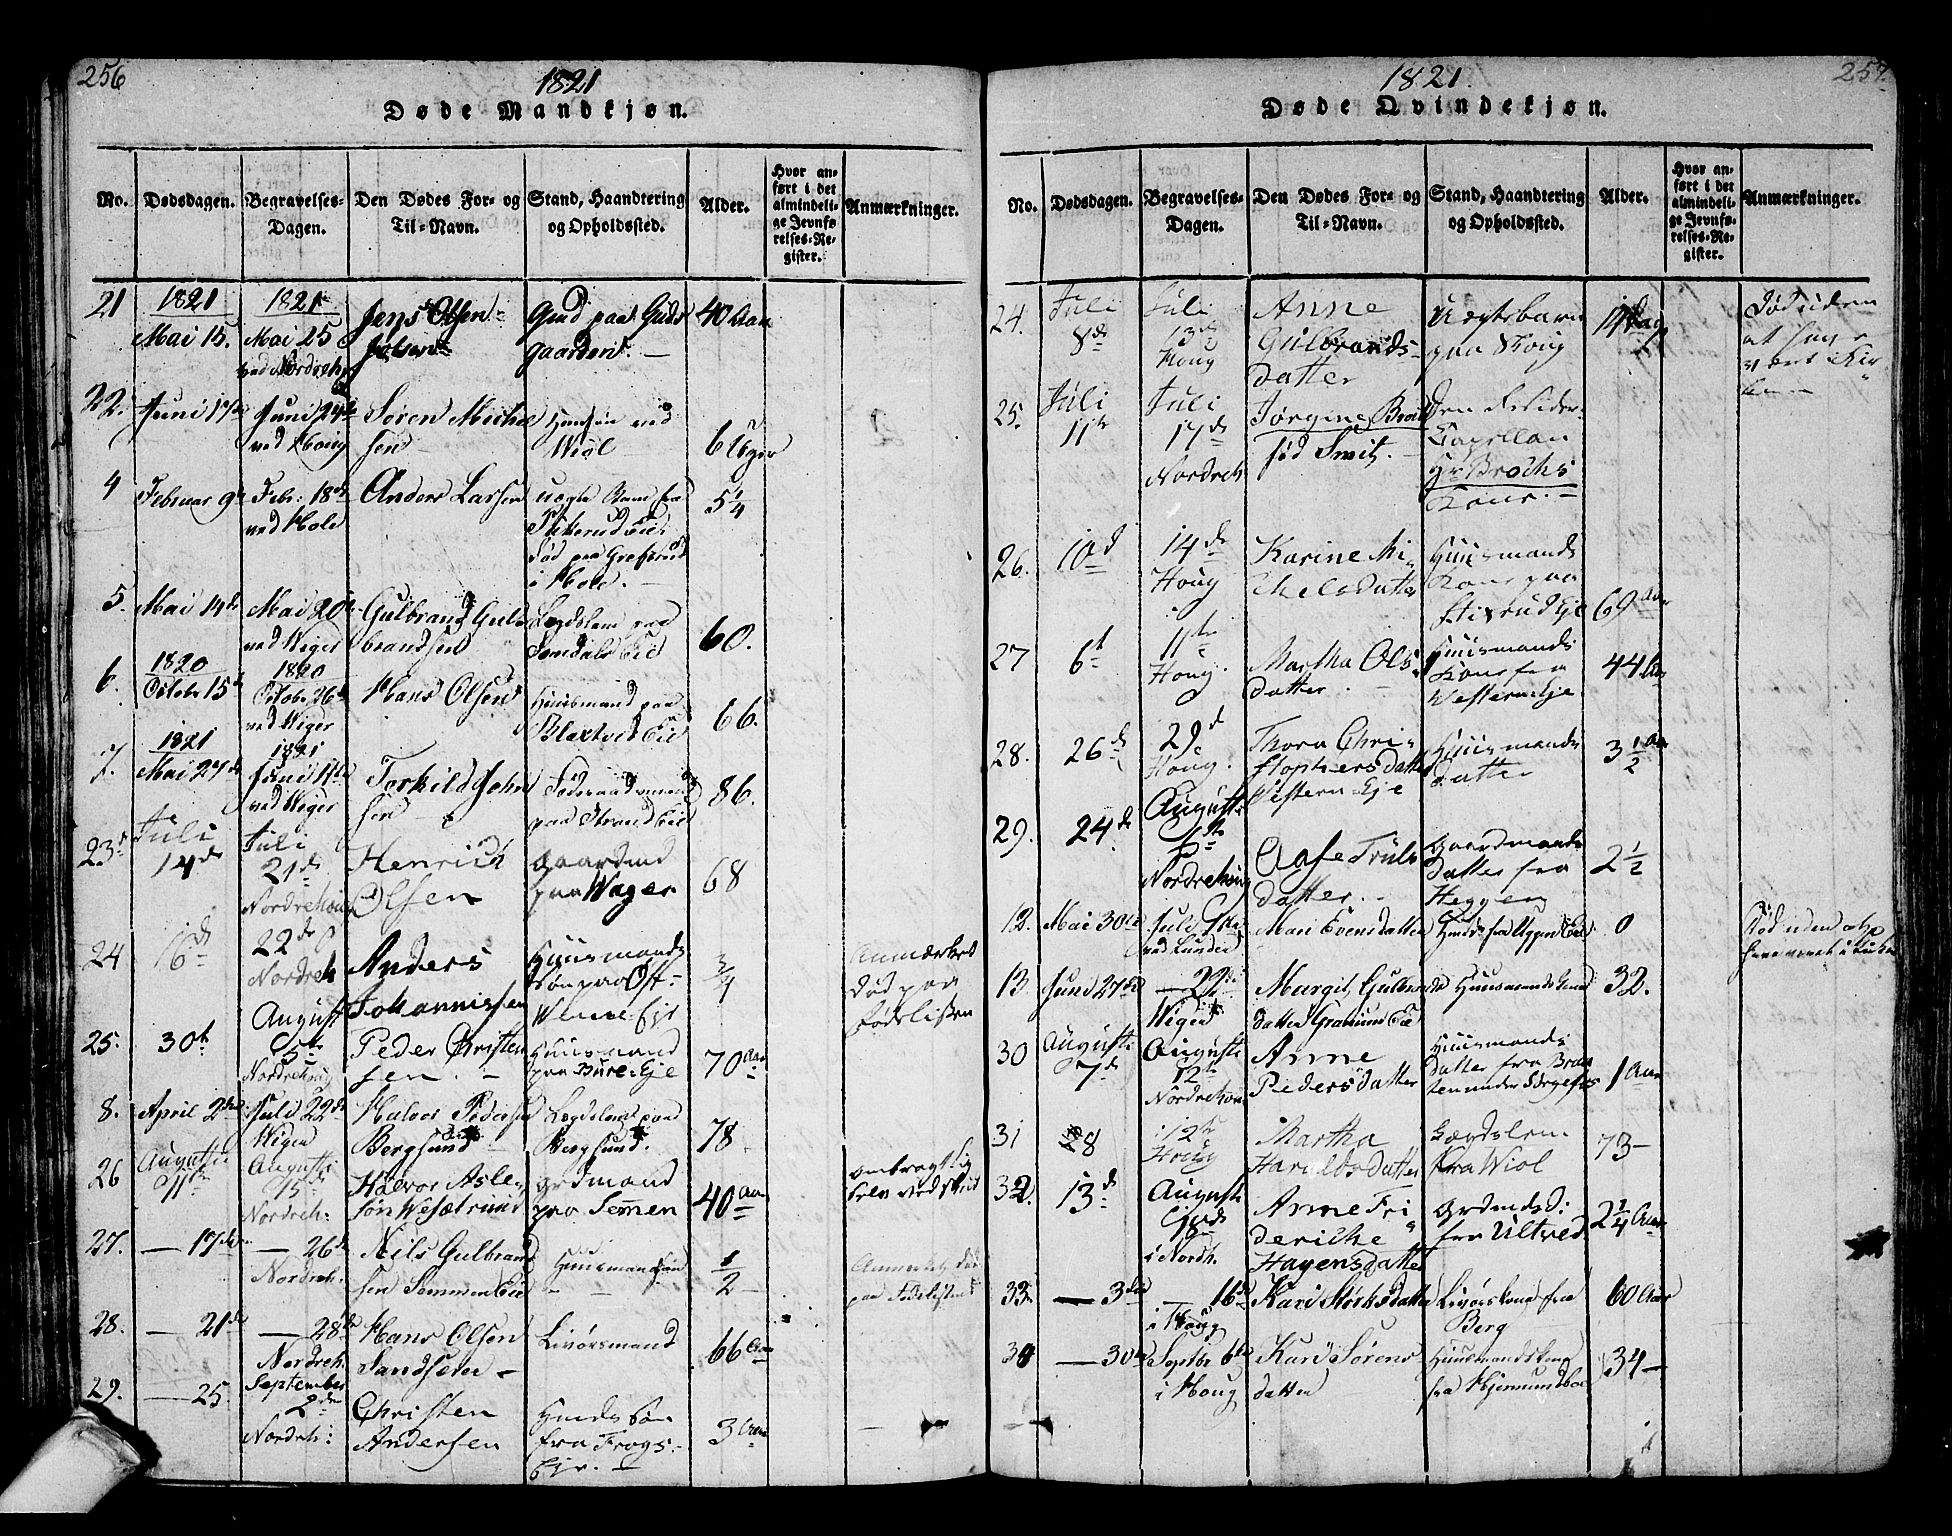 256
1821
Døde Mandkjøn.
No.
Dødsdagen.
Begravelses-
Dagen.
Den Dødes For- og
Til-Navn.
Stand, Haandtering
og Opholdssted.
Alder.
Hvor an-
ført i det
almindeli-
ge Jevnfø-
relses-Re-
gister.
Anmærkninger.
21
1821
Mai 15.
1821
Mai 25
ved Nordreh
Jens Olsen
40 Aar
22.
Juni 17de
Juni 24de
ved Houg
Søren Michel
sen
Wiøl
6 Uger
4
Februar 9de
Febr: 18de
ved Hole
Anders Larsen
uægte Barn fra
Eie
død paa
i Hole.
5 1/4
5.
Mai 14de
Mai 20de
ved Wiger
Gulbrand Gul
brandsen
Lægdslem paa
Eie
60.
6.
1820
Octobr 15de
1820
Octobr 26de
ved Wiger
Hans Olsen
Huusmand paa
Eie
66.
7.
1821
Mai 27de
1821
Juni 11te
ved Wiger
Torkild John
sen
Føderaadsmand
paa Strand Eie
86.
23
Juli
14de
Juli
21de
Nordrehoug
Henrich
Olsen
Gaardmd
paa Wager
68
24
16de
22de
Nordreh
Anders
Johannissen
Huusmands
søn paa Øst-
Eje
3/4
Anmærket
død paa
fødelisten
25.
30te
August
5te
Nordrehoug
Peder Christen
sen.
Huusmand
paa Bure Eje
70 Aar
8.
April 2den
Juli 22de
Wiger
Halvor Pedersen
Bergsund
Lægdslem paa
Bergsund.
78
26
Augusti
11te
Augusti
15de
Nordreh:
Halvor Asle
søn Wesætrund
Grdmand
paa Semmen
40 Aar
ombragt sig
selv ved
27.
— 17de
— 26de
Nordreh.
Nils Gulbrand
sen Semmen Eie
Huusmandssøn
1/2
Anmerket død
paa Fødelisten
28.
— 21de
— 28de
Nordreh.
Hans Olsen
66 Aar
29.
— 25.
September
2den
Nordreh:
Christen
Andersen
Huusm søn
fra Frogs-
Eje. —
3 Aar
257
1821.
Døde Qvindekjøn.
No.
Dødsdagen.
Begravelses-
Dagen.
Den Dødes For- og
Til-Navn.
Stand, Haandtering
og Opholdssted.
Alder.
Hvor an-
ført i det
almindeli-
ge Jevnfø-
relses-Re-
gister.
Anmærkninger.
24.
Juli
8de
Juli
13de
Houg
Anne
Gulbrands-
datter
Uægtebarn
paa Houg
14 Dage
Død uden
at
været i Kir
ken
25.
Juli
11te
Juli
17de
Nordreh
Jørgine Broch
fød Smit. -
Den Resider.
Capellan
Hr Brochs
Kone. -
26.
10de
14de
Houg
Karine Mi
chelsdatter
Huusmands
Kone paa
Eje
69 Aar
27
6te
11te
Houg.
Martha Ols
datter. -
Huusmands
Kone fra
Vestern Eje
44 Aar
28.
26de
29de
Houg.
Thora Chri-
stophersdatter
Vestern Eje
Huusmands
datter
3 1/2 Aar
29.
24de
Augusti
Nordrehoug
Aase Truls
datter. -
Gaardmands
datter fra
Heggen
2 1/2
12.
Mai 30te
Juli
ved Lunder
Mari Evensdatter
Eie
0
Død uden at
have været i Kirken
13.
Juni 27de
— 22de
Wiger
Margit Gulbrands
datter
Huusmandskone
32.
30
Augusti
7de
Augusti
12te
Nordrehou
Anne
Pedersdatter
Huusmands
datter fra
1 Aar
31
8
12te
Houg
Martha
Haraldsdatter
Lægdslem
fra Wiøl
73 —
32.
13de
Augusti
18de
i Nordh.
Anne Fri
deriche
Hagensdatter
Grdmds d:
fra Ultved
2 1/4 Aar
33.
— 3die
— 16de
i Houg
Kari Størksdatter
Livørskone fra
Berg
60 Aar
34
— 30te
Septbr 6te
i Houg
Kari Sørens
datter
Huusmandskone
fra Hjermundboe
34 —